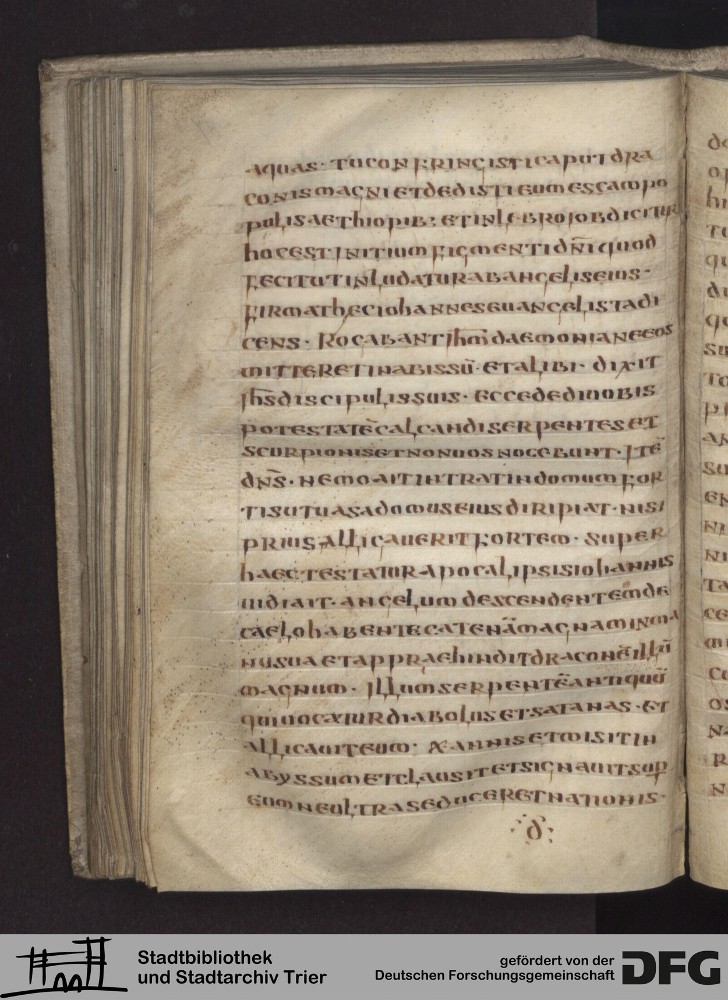 aquas · tu confringisti caput dra
conis magni et dedisti eum escam po
pulis aethiopib: et in lebro iob dicitur
hoc est initium figmenti dn̄i quod
fecit ut inludatur ab angelis eius ·
firmat hec iohannes euangelista di
cens · rocabant ih̄m daemonia ne eos
mitteret in abissū · et alibi · dixit
ih̄s discipulis suis · ecce dedi uobis
potestatē calcandi serpentes et
scurpionis et non uos nocebunt · itē
dn̄s · nemo ait intrat in domum for
tis ut uasa domus eius diripiat · nisi
prius allicauerit fortem · super
haec testatur apocalipsis iohannis
uidi ait · angelum descendentem de
caelo habente catenā magnam in ma
nu sua et appraehindit draconē illū
magnum · illum serpentē antiquū
qui uocatur diabolus et satanas · et
allicauit eum · ∝ annis et misit in
abyssum et clausit et signauit sup
eum ne ultra seduceret nationis ·
·:d:·
Stadtbibliothek
und Stadtarchiv Trier
gefördert von der
Deutschen Forschungsgemeinschaft
DFG